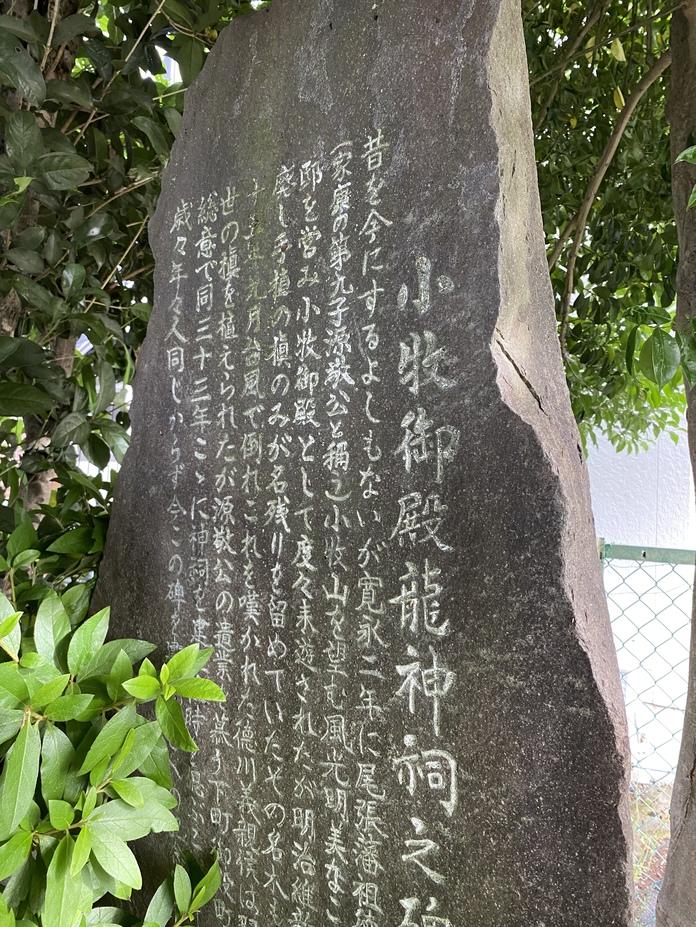 小牧御殿龍神祠之碑
昔を今にするよしもないが寛永二年に尾張藩祖徳
(家康の第九子源敬公と稱)小牧山を望む風光明美なこ
邸を営み小牧御殿として度々来遊されたが明治維新
廃し手植の槇のみが名残りを留めていたその名木も
年九月台風で倒れこれを嘆かれた徳川義親候は
世の槇を植えられたが源敬公の遺業慕う下町
総意で同三十三年こゝに神祠を建
歳々年々人同じからず今この碑を